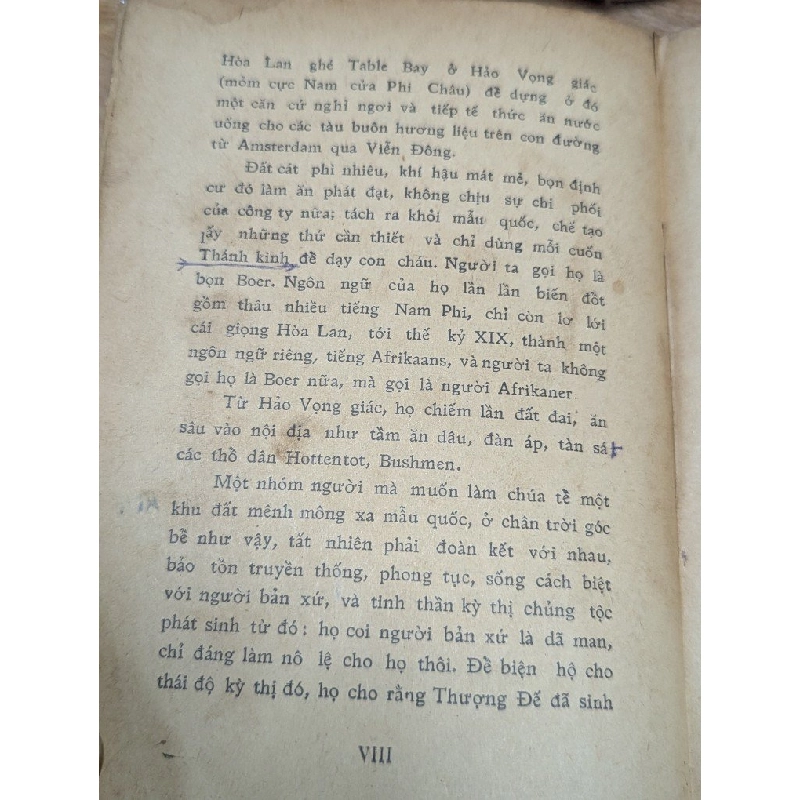 Hòa Lan ghé Table Bay ở Hảo Vọng giác
(mỏm cực Nam của Phi Châu) để dựng ở đó
một căn cứ nghỉ ngơi và tiếp tế thức ăn nước
uống cho các tàu buôn hương liệu trên con đường
từ Amsterdam qua Viễn Đông.
Đất cát phì nhiêu, khí hậu mát mẻ, bọn định
cư đó làm ăn phát đạt, không chịu sự chi phối
của công ty nữa; tách ra khỏi mẫu quốc, chế tạo
lấy những thứ cần thiết và chỉ dùng mỗi cuốn
Thánh kinh để dạy con cháu. Người ta gọi họ là
bọn Boer. Ngôn ngữ của họ lần lần biến đổi
gồm thâu nhiều tiếng Nam Phi, chỉ còn lơ lớ
cái giọng Hòa Lan, tới thế kỷ XIX, thành một
ngôn ngữ riêng, tiếng Afrikaans, và người ta không
gọi họ là Boer nữa, mà gọi là người Afrikaner
Từ Hảo Vọng giác, họ chiếm lần đất đai, ăn
sâu vào nội địa như tằm ăn dâu, đàn áp, tàn sát
các thổ dân Hottentot, Bushmen.
Một nhóm người mà muốn làm chúa tể một
khu đất mênh mông xa mẫu quốc, ở chân trời góc
bể như vậy, tất nhiên phải đoàn kết với nhau,
bảo tồn truyền thống, phong tục, sống cách biệt
với người bản xứ, và tinh thần kỳ thị chủng tộc
phát sinh từ đó: họ coi người bản xứ là dã man,
chỉ đáng làm nô lệ cho họ thôi. Để biện hộ cho
thái độ kỳ thị đó, họ cho rằng Thượng Đế đã sinh
VIII